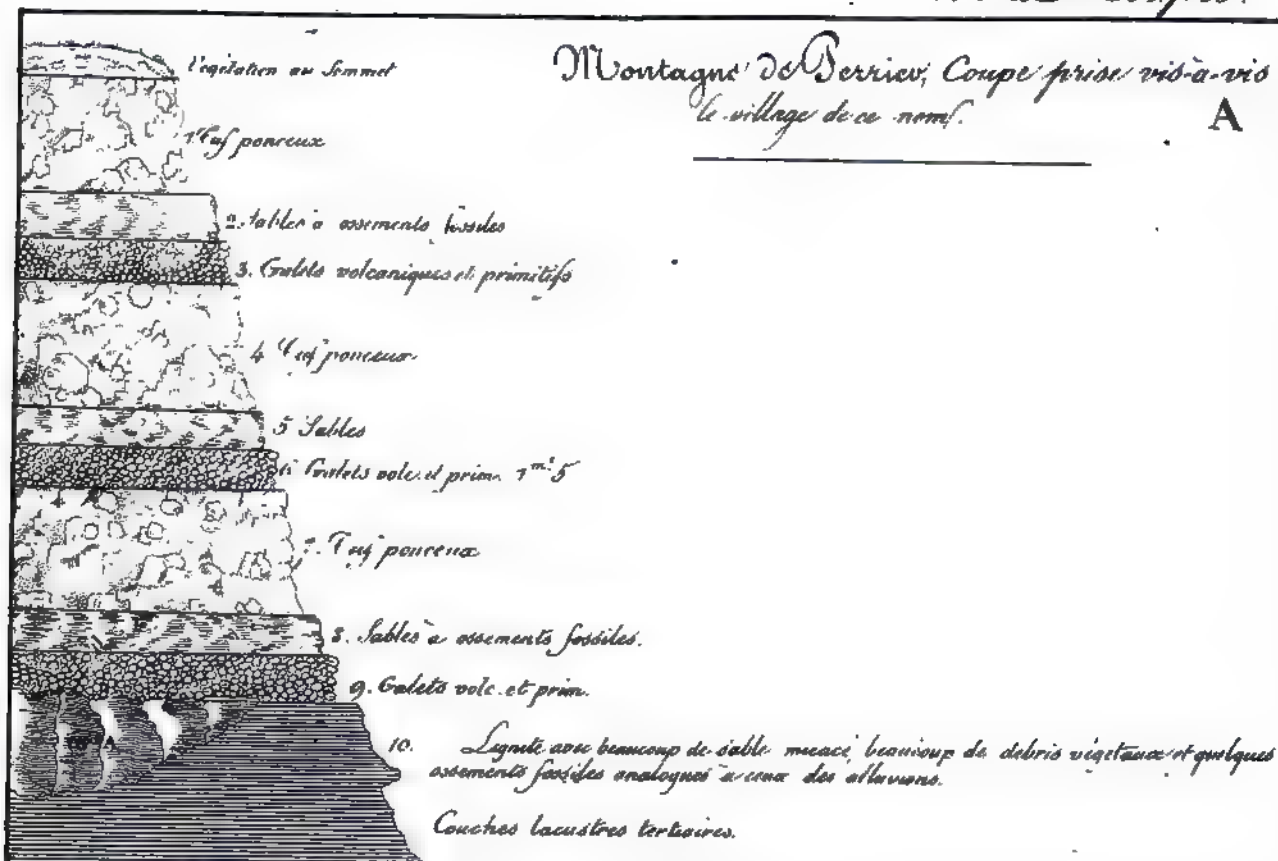 Montagne de Perrier, Coupe prise vis-à-vis
le village de ce nom.
A
Végétation au Sommet
1 Tuf ponceux
2. Sables à ossements fossiles
3. Galets volcaniques et primitifs
4 Tuf ponceux
5 Sables
6 Galets volc. et prim. 1m.5
7. Tuf ponceux
8. Sables à ossements fossiles.
9. Galets volc. et prim.
10. Lignite avec beaucoup de sable micacé, beaucoup de debris végetaux et quelques
ossements fossiles analogues à ceux des alluvions.
Couches lacustres tertiaires.